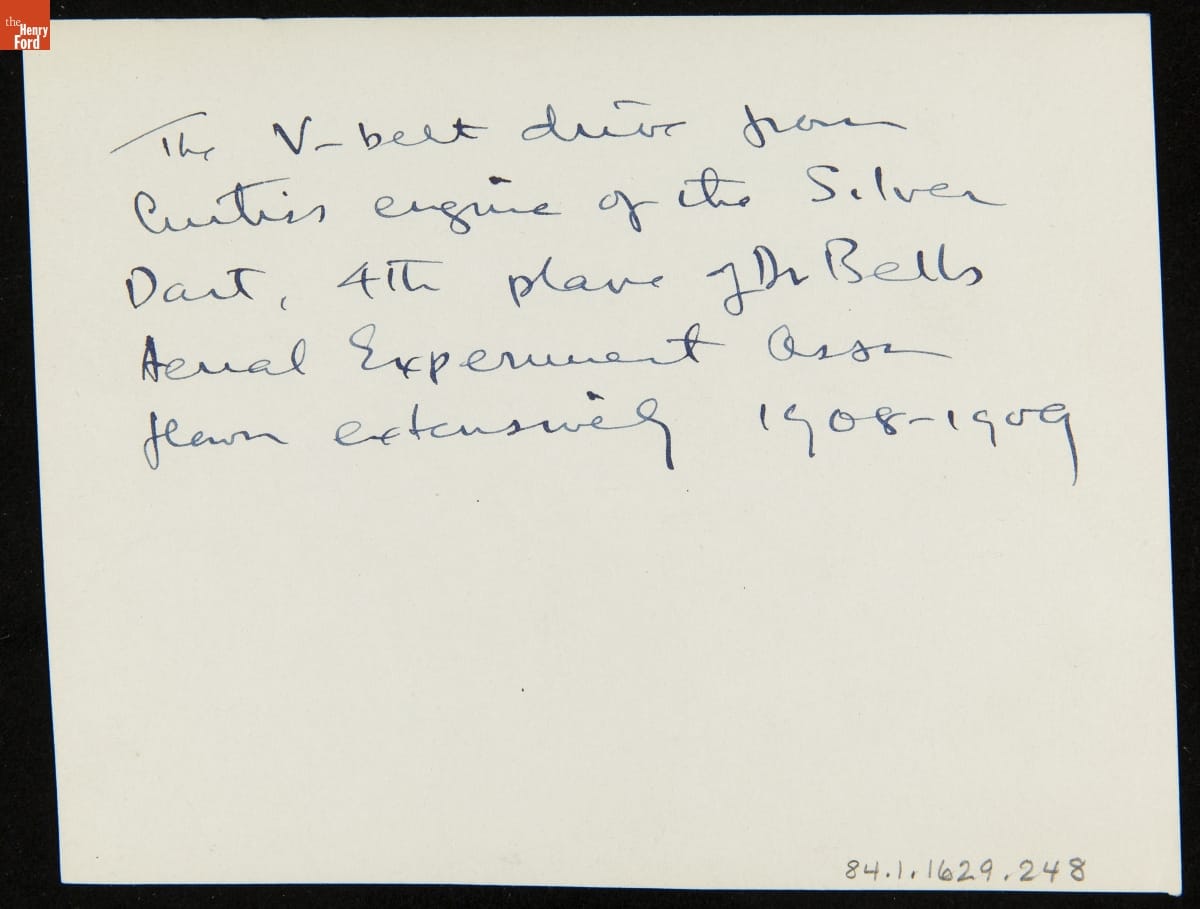 the
Henry
Ford
The V-belt drive from
Curtiss engine of the Silver
Dart, 4th plane of Dr Bells
Aerial Experiment Assn
flown extensively 1908-1909
84.1.1629.248